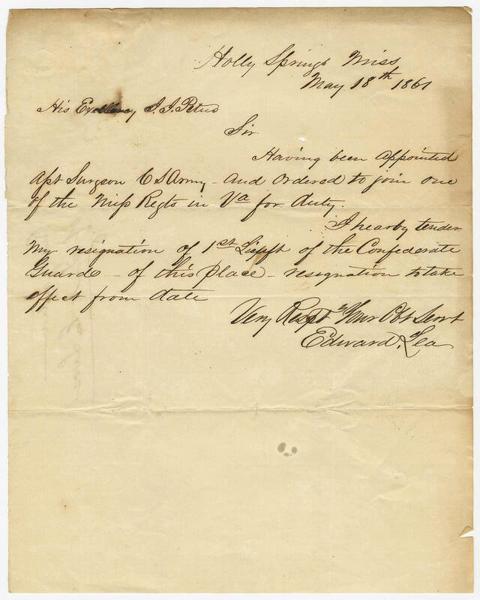 Holly Springs Miss
May 18th 1861
His Excellency J. J. Pettus
Sir
Having been appointed
Asst Surgeon C S Army - and ordered to join one
of the Miss Regts in Va for duty,
I hearby tender
my resignation of 1st Lieut of the Confederate
Guards - of this place - resignation to take
effect from date
Very Respt Your Obt Servt
Edward Lea